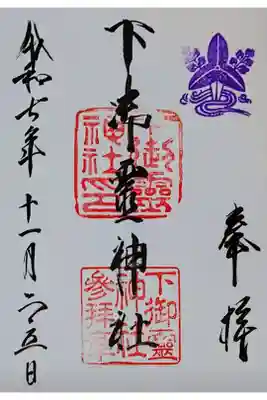 奉拝
下御霊神社
下御靈神社印
下御霊神社参拝章
令和七年十一月二十五日